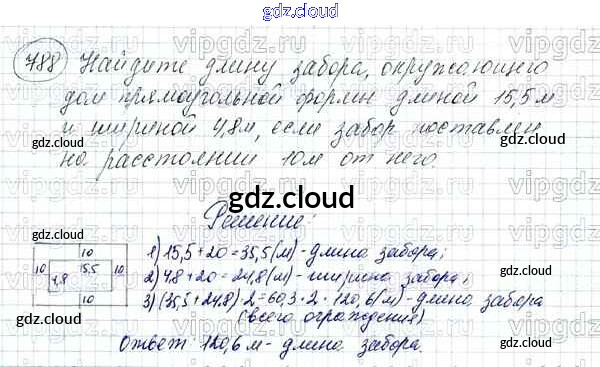 gdz.cloud
788 Найдите длину забора, окружающего
дом прямоугольной формы длиной 15,5 м
и шириной 4,8 м, если забор поставлен
на расстоянии 10 м от него.
gdz.cloud
gdz.cloud
gdz.cloud
Решение:
10
10 15,5 10
4,8
10
1) 15,5 + 20 = 35,5 (м) - длина забора;
2) 4,8 + 20 = 24,8 (м) - ширина забора;
3) (35,5 + 24,8) · 2 = 60,3 · 2 = 120,6 (м) - длина забора
(всего ограждения)
gdz.cloud
gdz.cloud
Ответ: 120,6 м - длина забора.
gdz.cloud
gdz.cloud